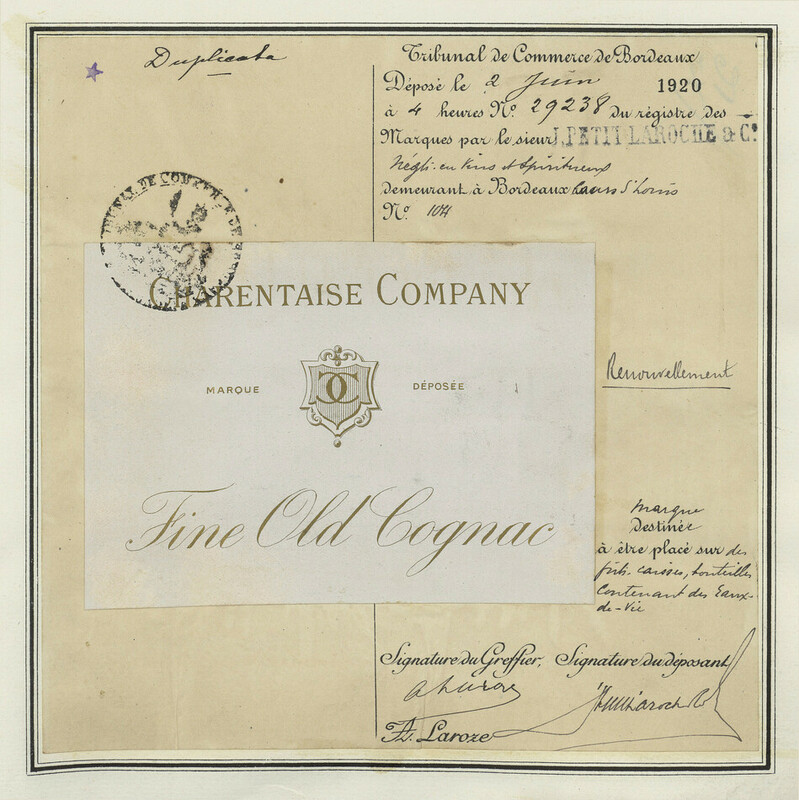 Duplicata
Tribunal de Commerce de Bordeaux
Déposé le 2 Juin 1920
à 4 heures N° 29238 du régistre des
Marques par le sieur J. PETIT LAROCHE & Cie
Négt. en Vins et Spiritueux
demeurant à Bordeaux Cours St Louis
N° 104
TRIBUNAL DE COMMERCE DE
CHARENTAISE COMPANY
MARQUE DÉPOSÉE
CC
Renouvellement
Fine Old Cognac
marque
Destinée
à être placé sur des
fûts, caisses, bouteilles
contenant des Eaux-
de-Vie
Signature du Greffier, Signature du déposant
A. Laroze